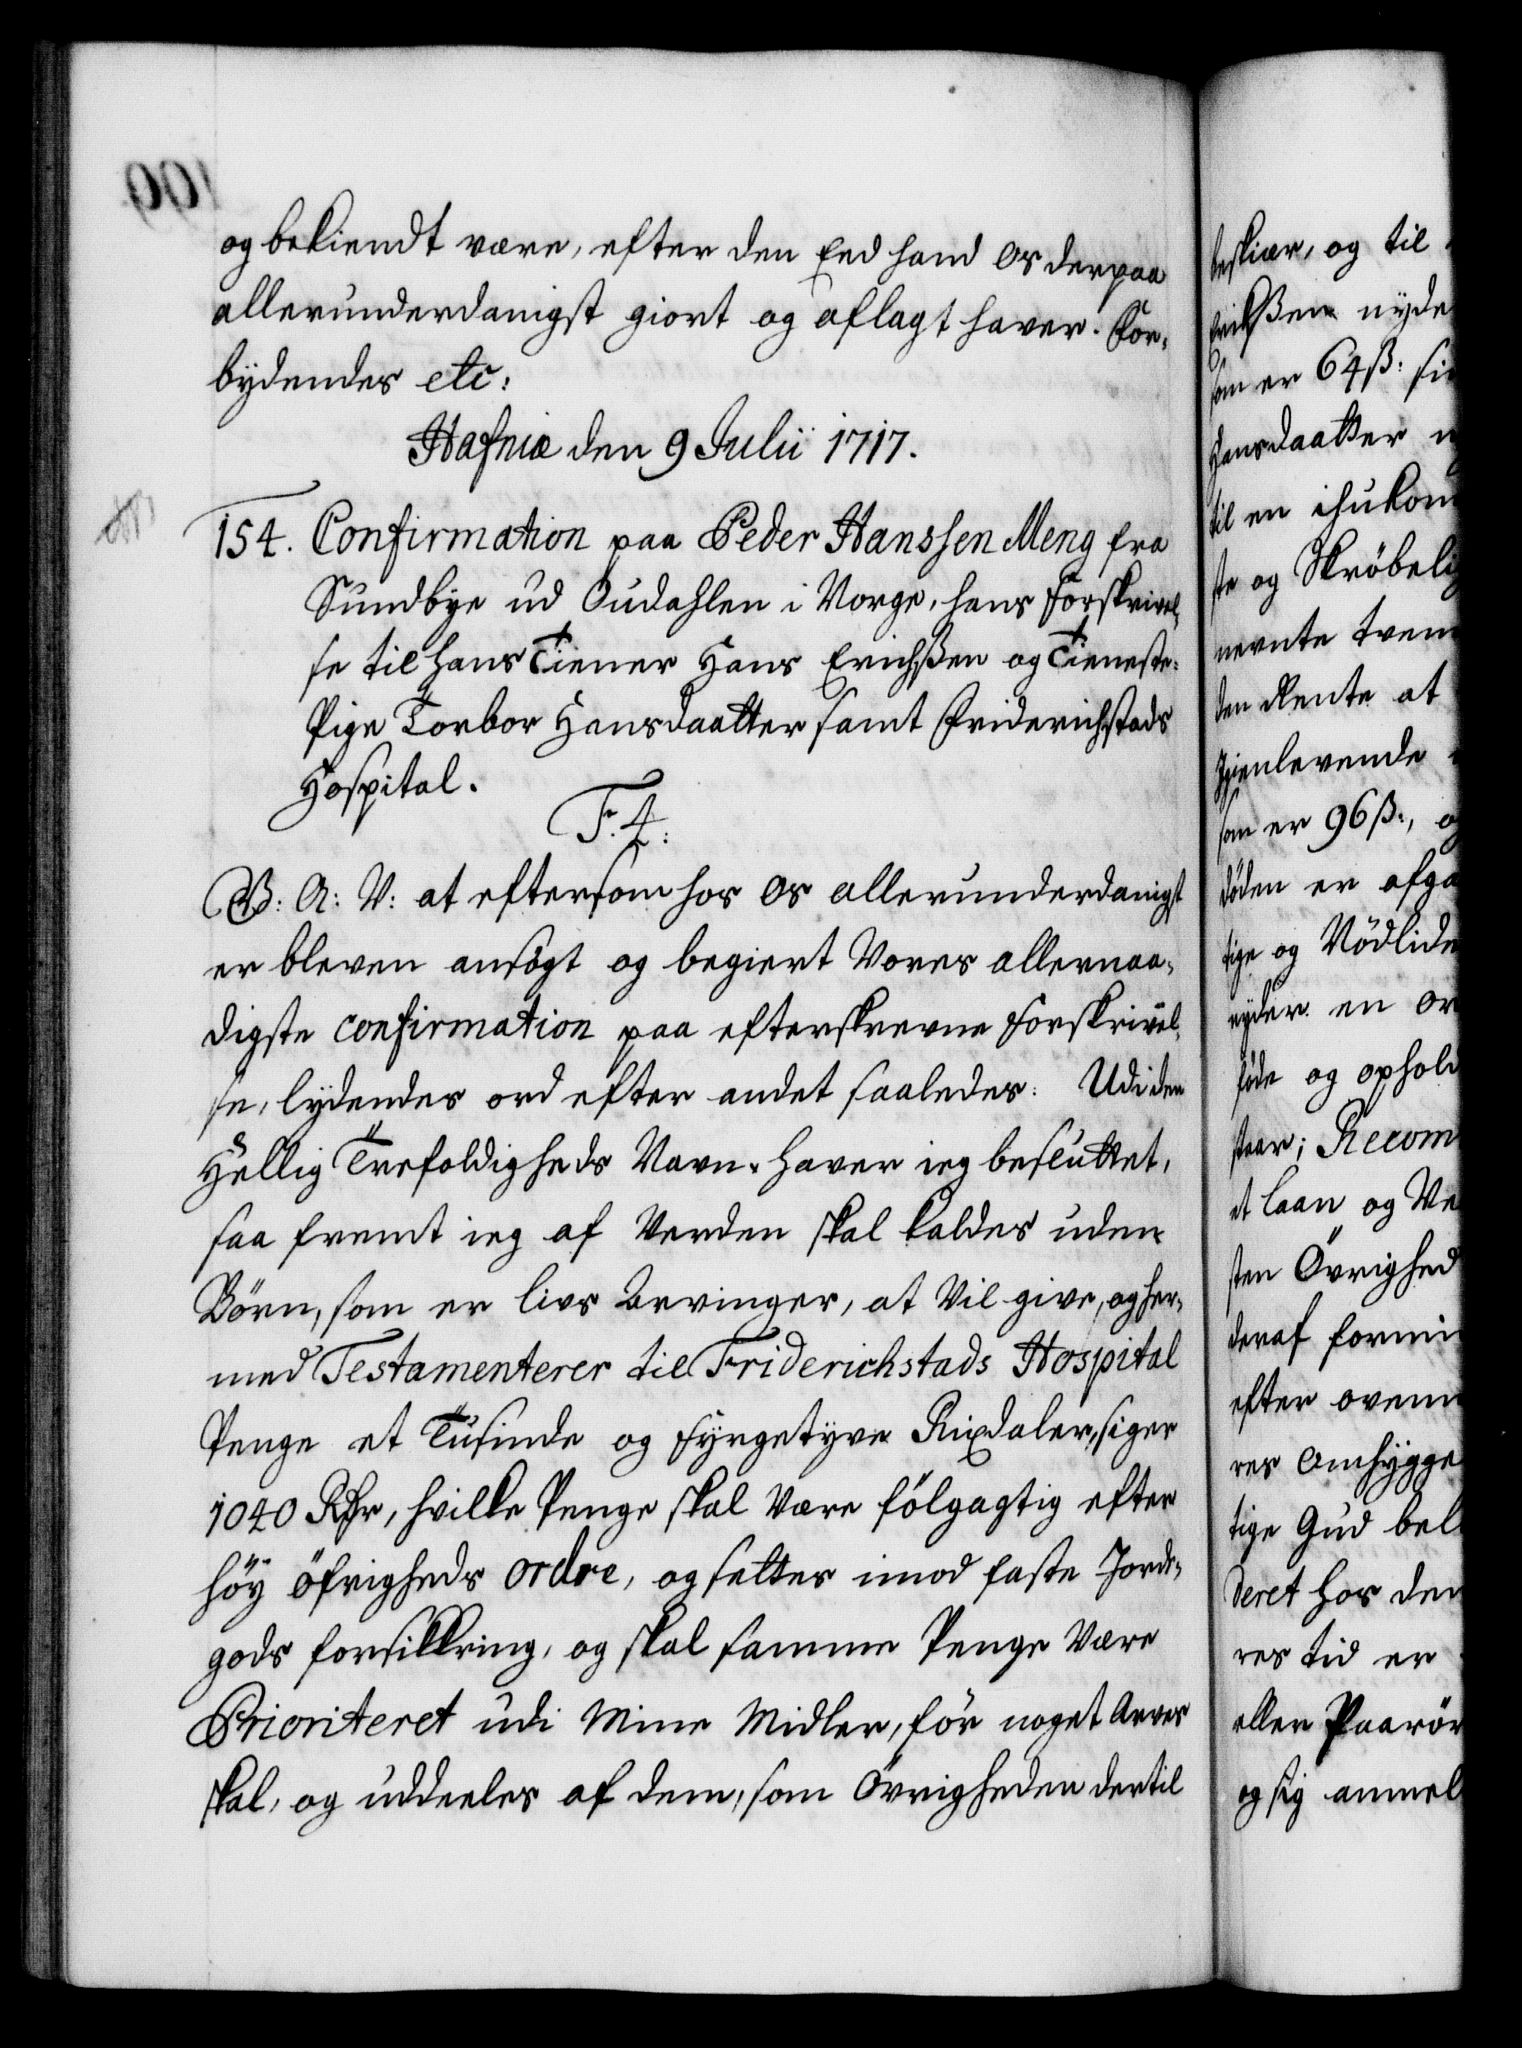 og bekiendt være, efter den Eed hand os derpaa
allerunderdanigst giort og aflagt haver. For-
bydendes etc:
Hafniæ den 9 Julii 1717.
154. Confirmation paa Peder Hanssen Meng fra
Sundbye ud Oudahlen i Norge, hans Forskrivel-
se til hans Tiener Hans Erichßen og Tieneste-
Pige Torbor Hansdaatter samt Friderichstads
Hospital.
F. 4:
G: A: V: at eftersom hos os allerunderdanigst
er bleven ansögt og begiert Vores allernaa-
digste confirmation paa efterskrevne Forskrivel-
se, lydendes ord efter andet saaledes: Udi den
Hellig Trefoldigheds Navn, haver ieg besluttet,
saa fremt ieg af Verden skal kaldes uden
Börn, som er livs Arvinger, at Vil give, og her-
med Testamenterer til Friderichstads Hospital
Penge et Tusinde og fyrgetyve Rixdaler, siger
1040 Rdr, hvilke Penge skal Være fölgagtig efter
höy öfrigheds ordre, og settes imod faste Jorde-
gods forsikkring, og skal samme Penge Være
Prioriteret udi Mine Midler, för noget Arves
skal, og uddeeles af dem, som Övrigheden dertil
beskiær, og til
Erichßen nyde
som er 64ß: si
Hansdaatter
til en ihukom
ste og Skröbelig
nevnte tven
den Rente at
Igienlevende
som er 96ß:, og
döden er afga
tige og Nödlide
nyder en or
föde og ophold
staar; Recom
et laan og Ve
sten Övrighed
deraf formi
efter oven
res Omhygge
tige Gud bel
deret hos den
res tid er
eller Paarör
og sig anmel